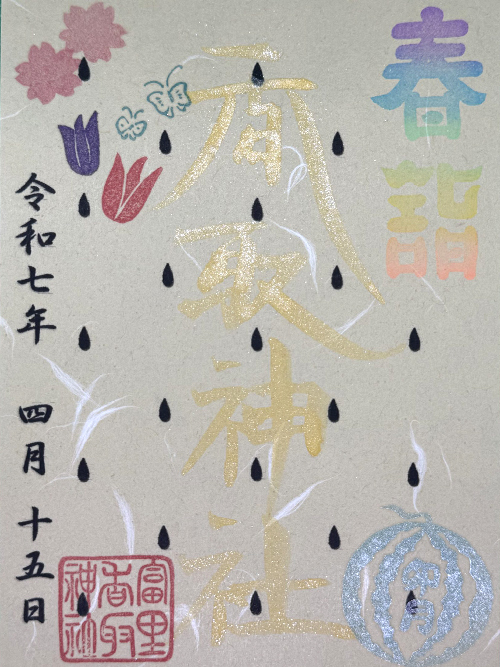 春詣
香取神社
令和七年 四月 十五日
富里
香取
神社